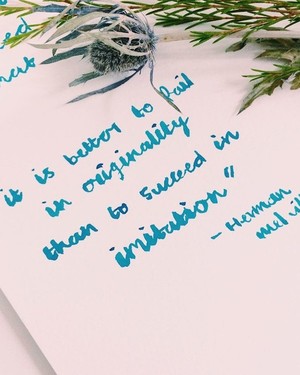 it is better to fail
in originality
than to succeed in
imitation"
- Herman